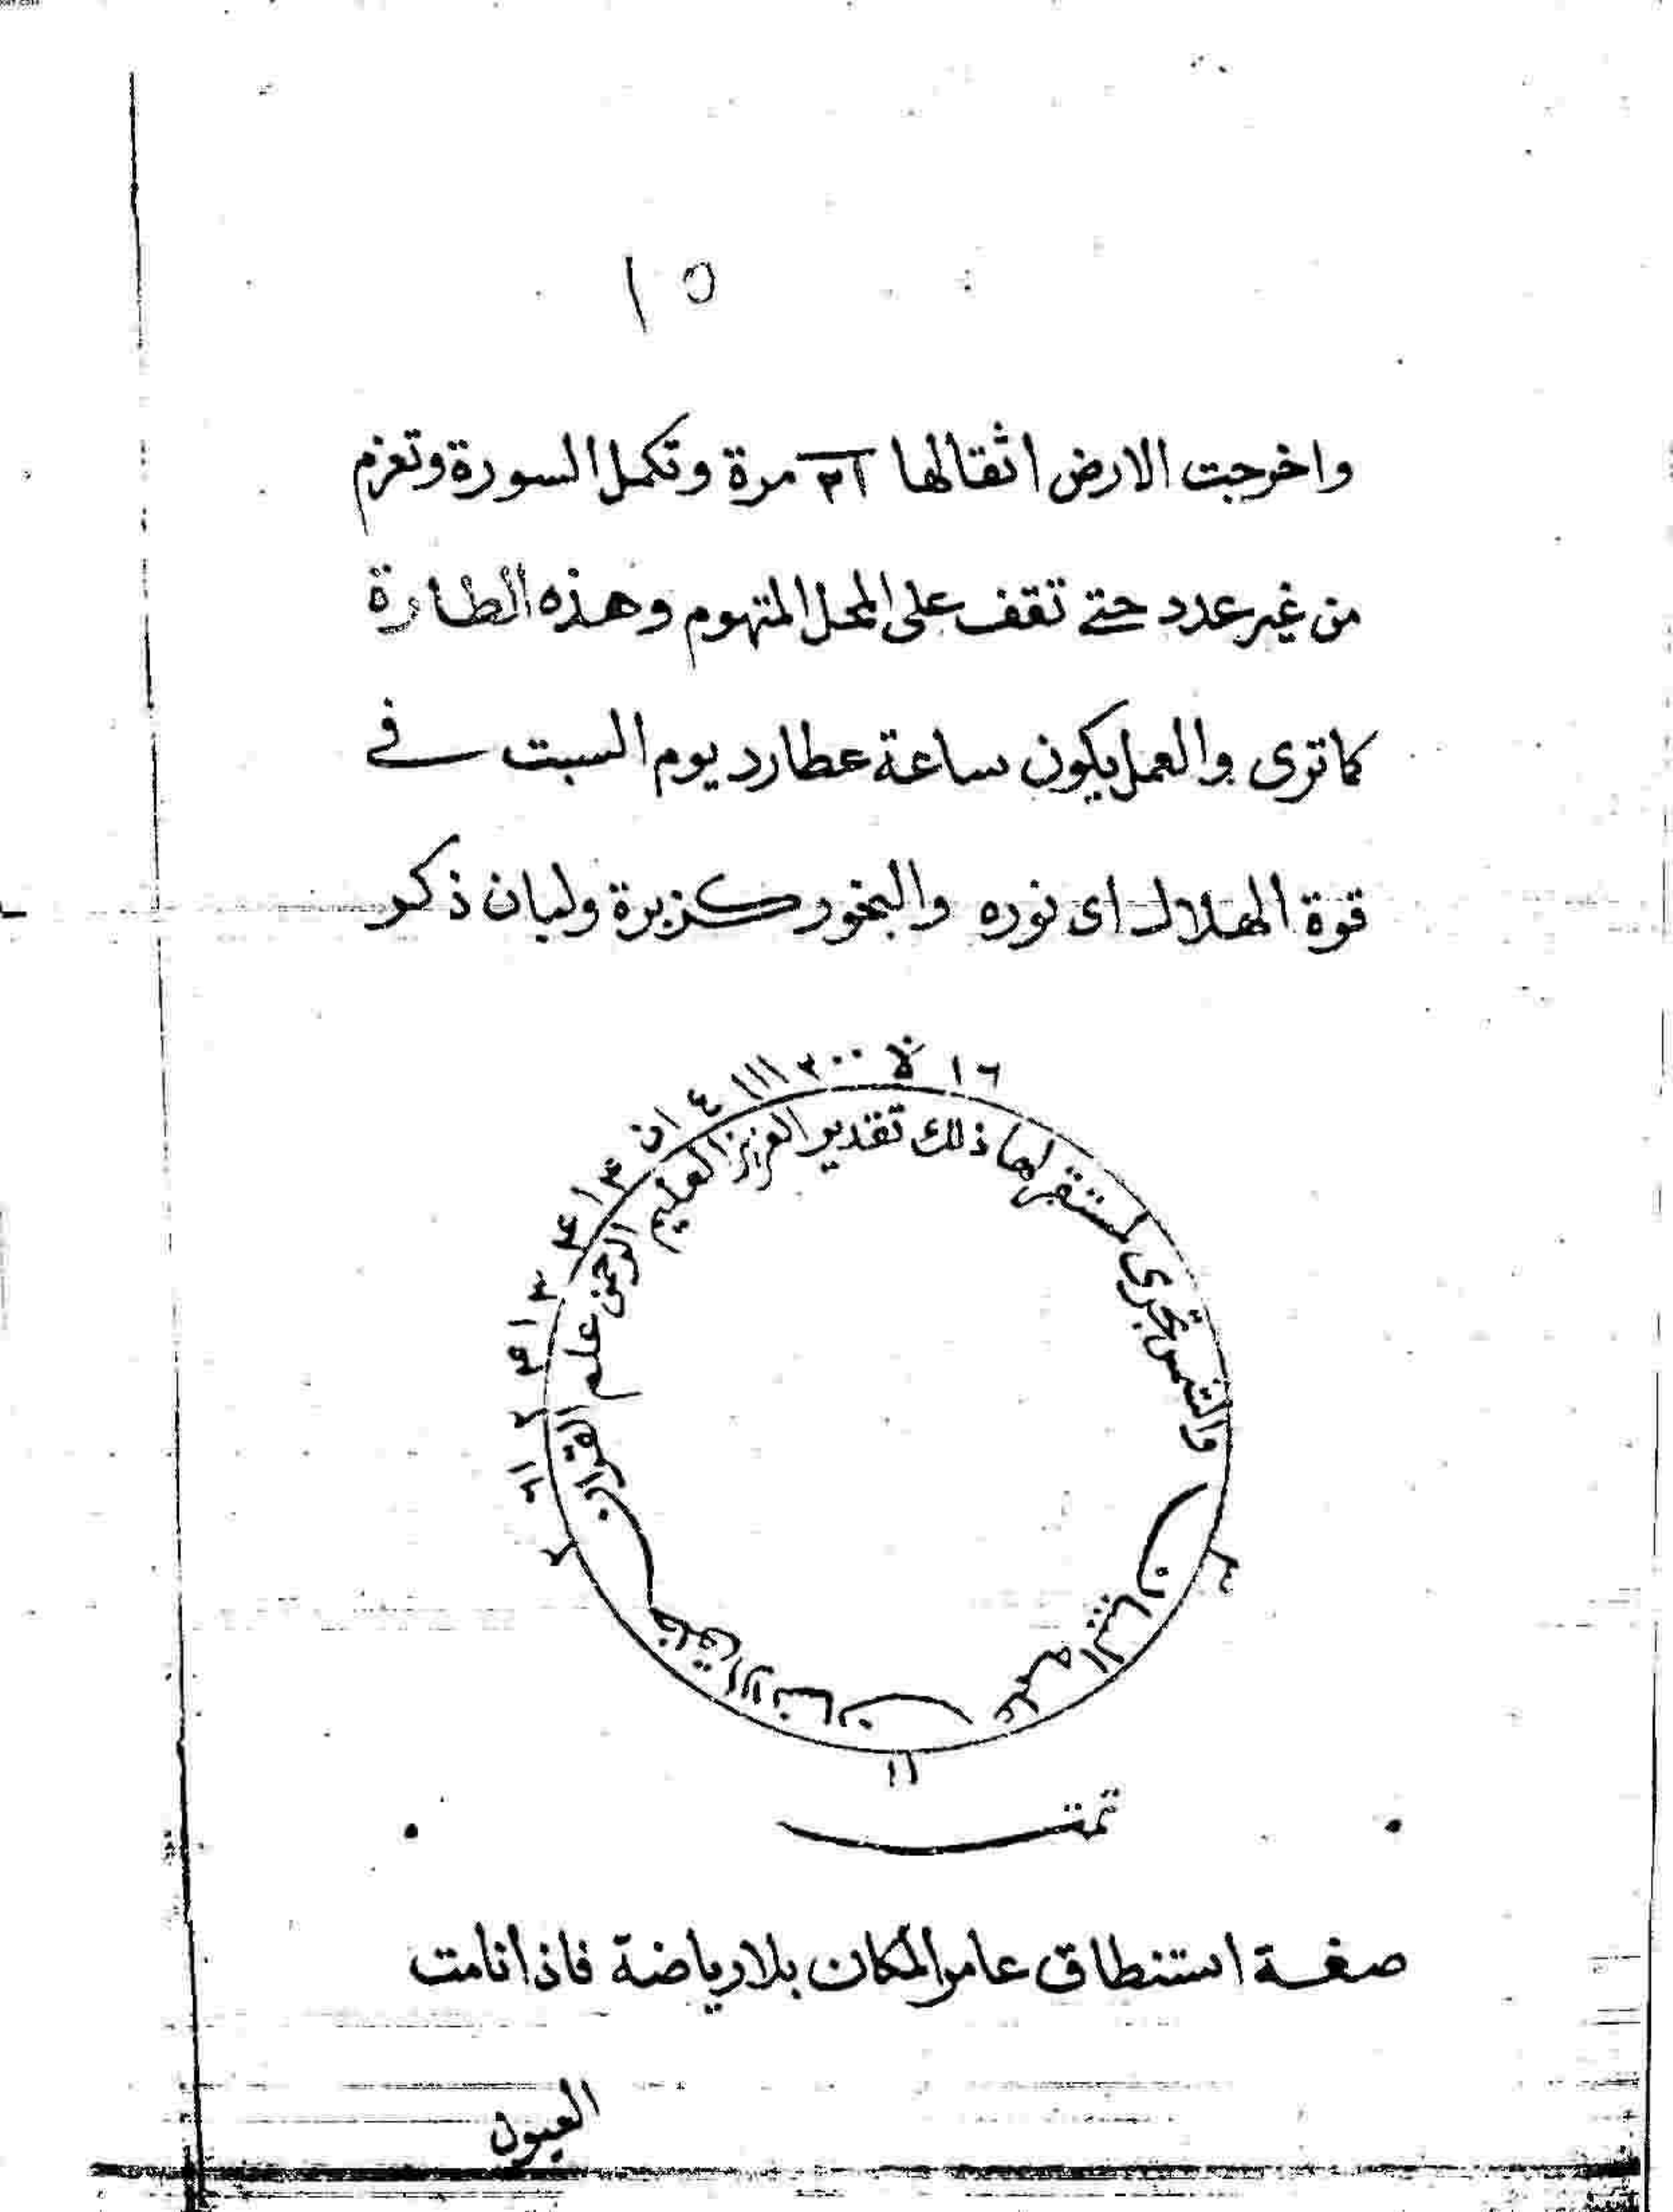 ١٥
واخرجت الارض اثقالها ٢١ مرة وتكمل السورة وتعزم
من غير عدد حتى تقف على المحل المتهوم وهذه الطارة
كما ترى والعمل يكون ساعة عطارد يوم السبت في
قوة الهلال اى نوره والبخور كزبرة ولبان ذكر
والشمس تجرى لمستقر لها ذلك تقدير العزيز العليم الرحمن علم القران خلق الانسان علمه البيان
١١
تمت
صفة استنطاق عامر المكان بلا رياضة فاذا نامت
العيون